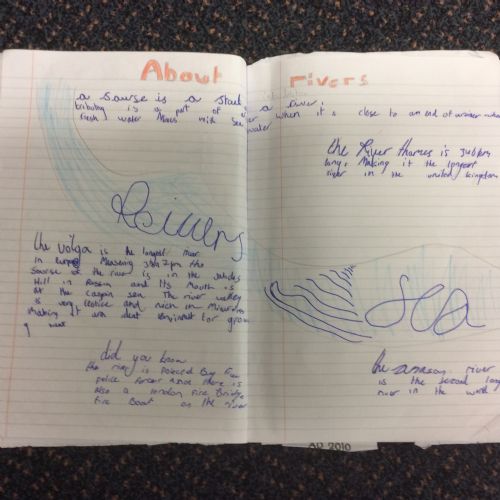 About rivers
a sourse is a start of a river.
tributrg is a part of a river when it is close to an end of
fresh water mixes with sea water
the River thames is 346km
long, Making it the longest
river in the united kingdom
Rivers
the volga is the longest river
in Europe Measering 3692pm the
sourse of the river is in the
Hill in Russia and Its Mouth is
at the caspan sea. The river valley
is very fertice and rich in Minerals
Making it an
sea
did you know
the river is Poleced By Five
police forces since there is
also a london Fire Bridge
Fire Boat on the river
the amason river
is the second long
river in the world
AD 2010